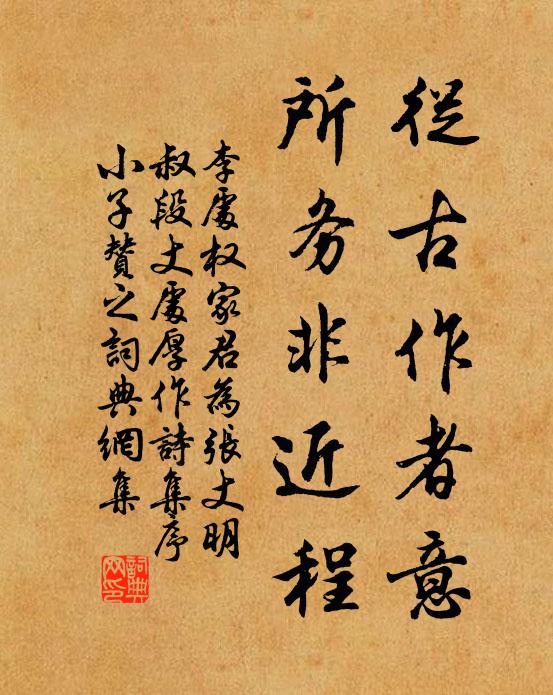 從古作者意
所务非近程
李處权家君為張丈明
叔段丈處厚作詩集序
小子贊之詞典網集
詞典网印